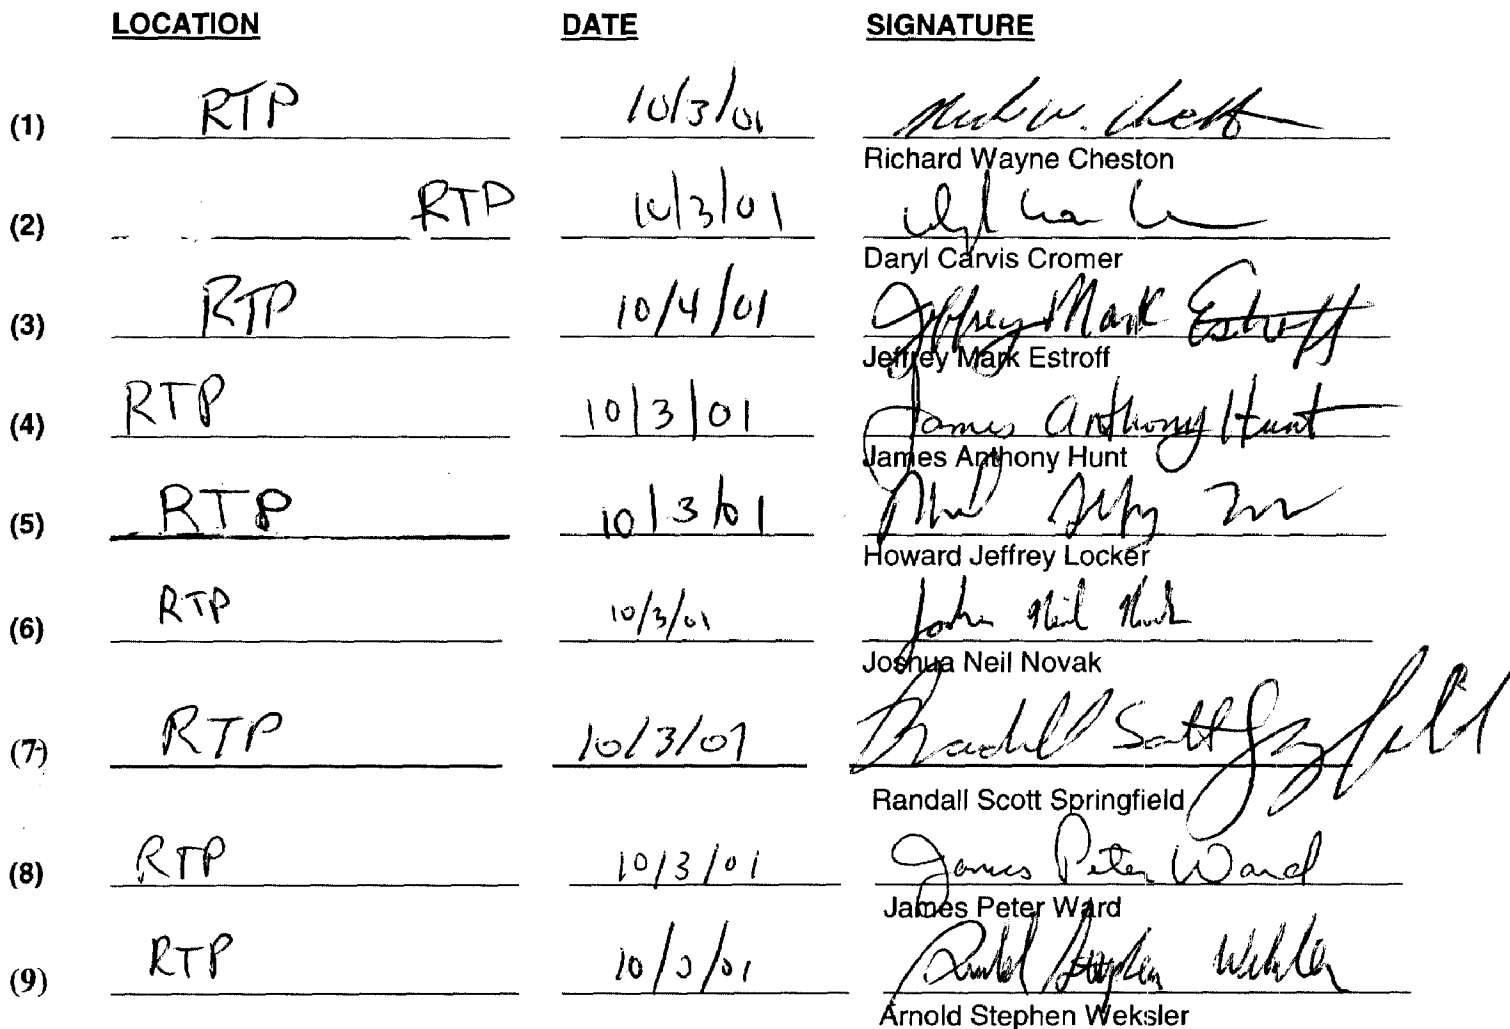 LOCATION DATE SIGNATURE
(1) RTP 10/3/01
Richard Wayne Cheston
(2) RTP 10/3/01
Daryl Carvis Cromer
(3) RTP 10/4/01 Jeffrey Mark Estroff
Jeffrey Mark Estroff
(4) RTP 10/3/01 James Anthony Hunt
James Anthony Hunt
(5) RTP 10/3/01
Howard Jeffrey Locker
(6) RTP 10/3/01 Joshua Neil Novak
Joshua Neil Novak
(7) RTP 10/3/01 Randall Scott Springfield
Randall Scott Springfield
(8) RTP 10/3/01 James Peter Ward
James Peter Ward
(9) RTP 10/3/01 Arnold Stephen Weksler
Arnold Stephen Weksler